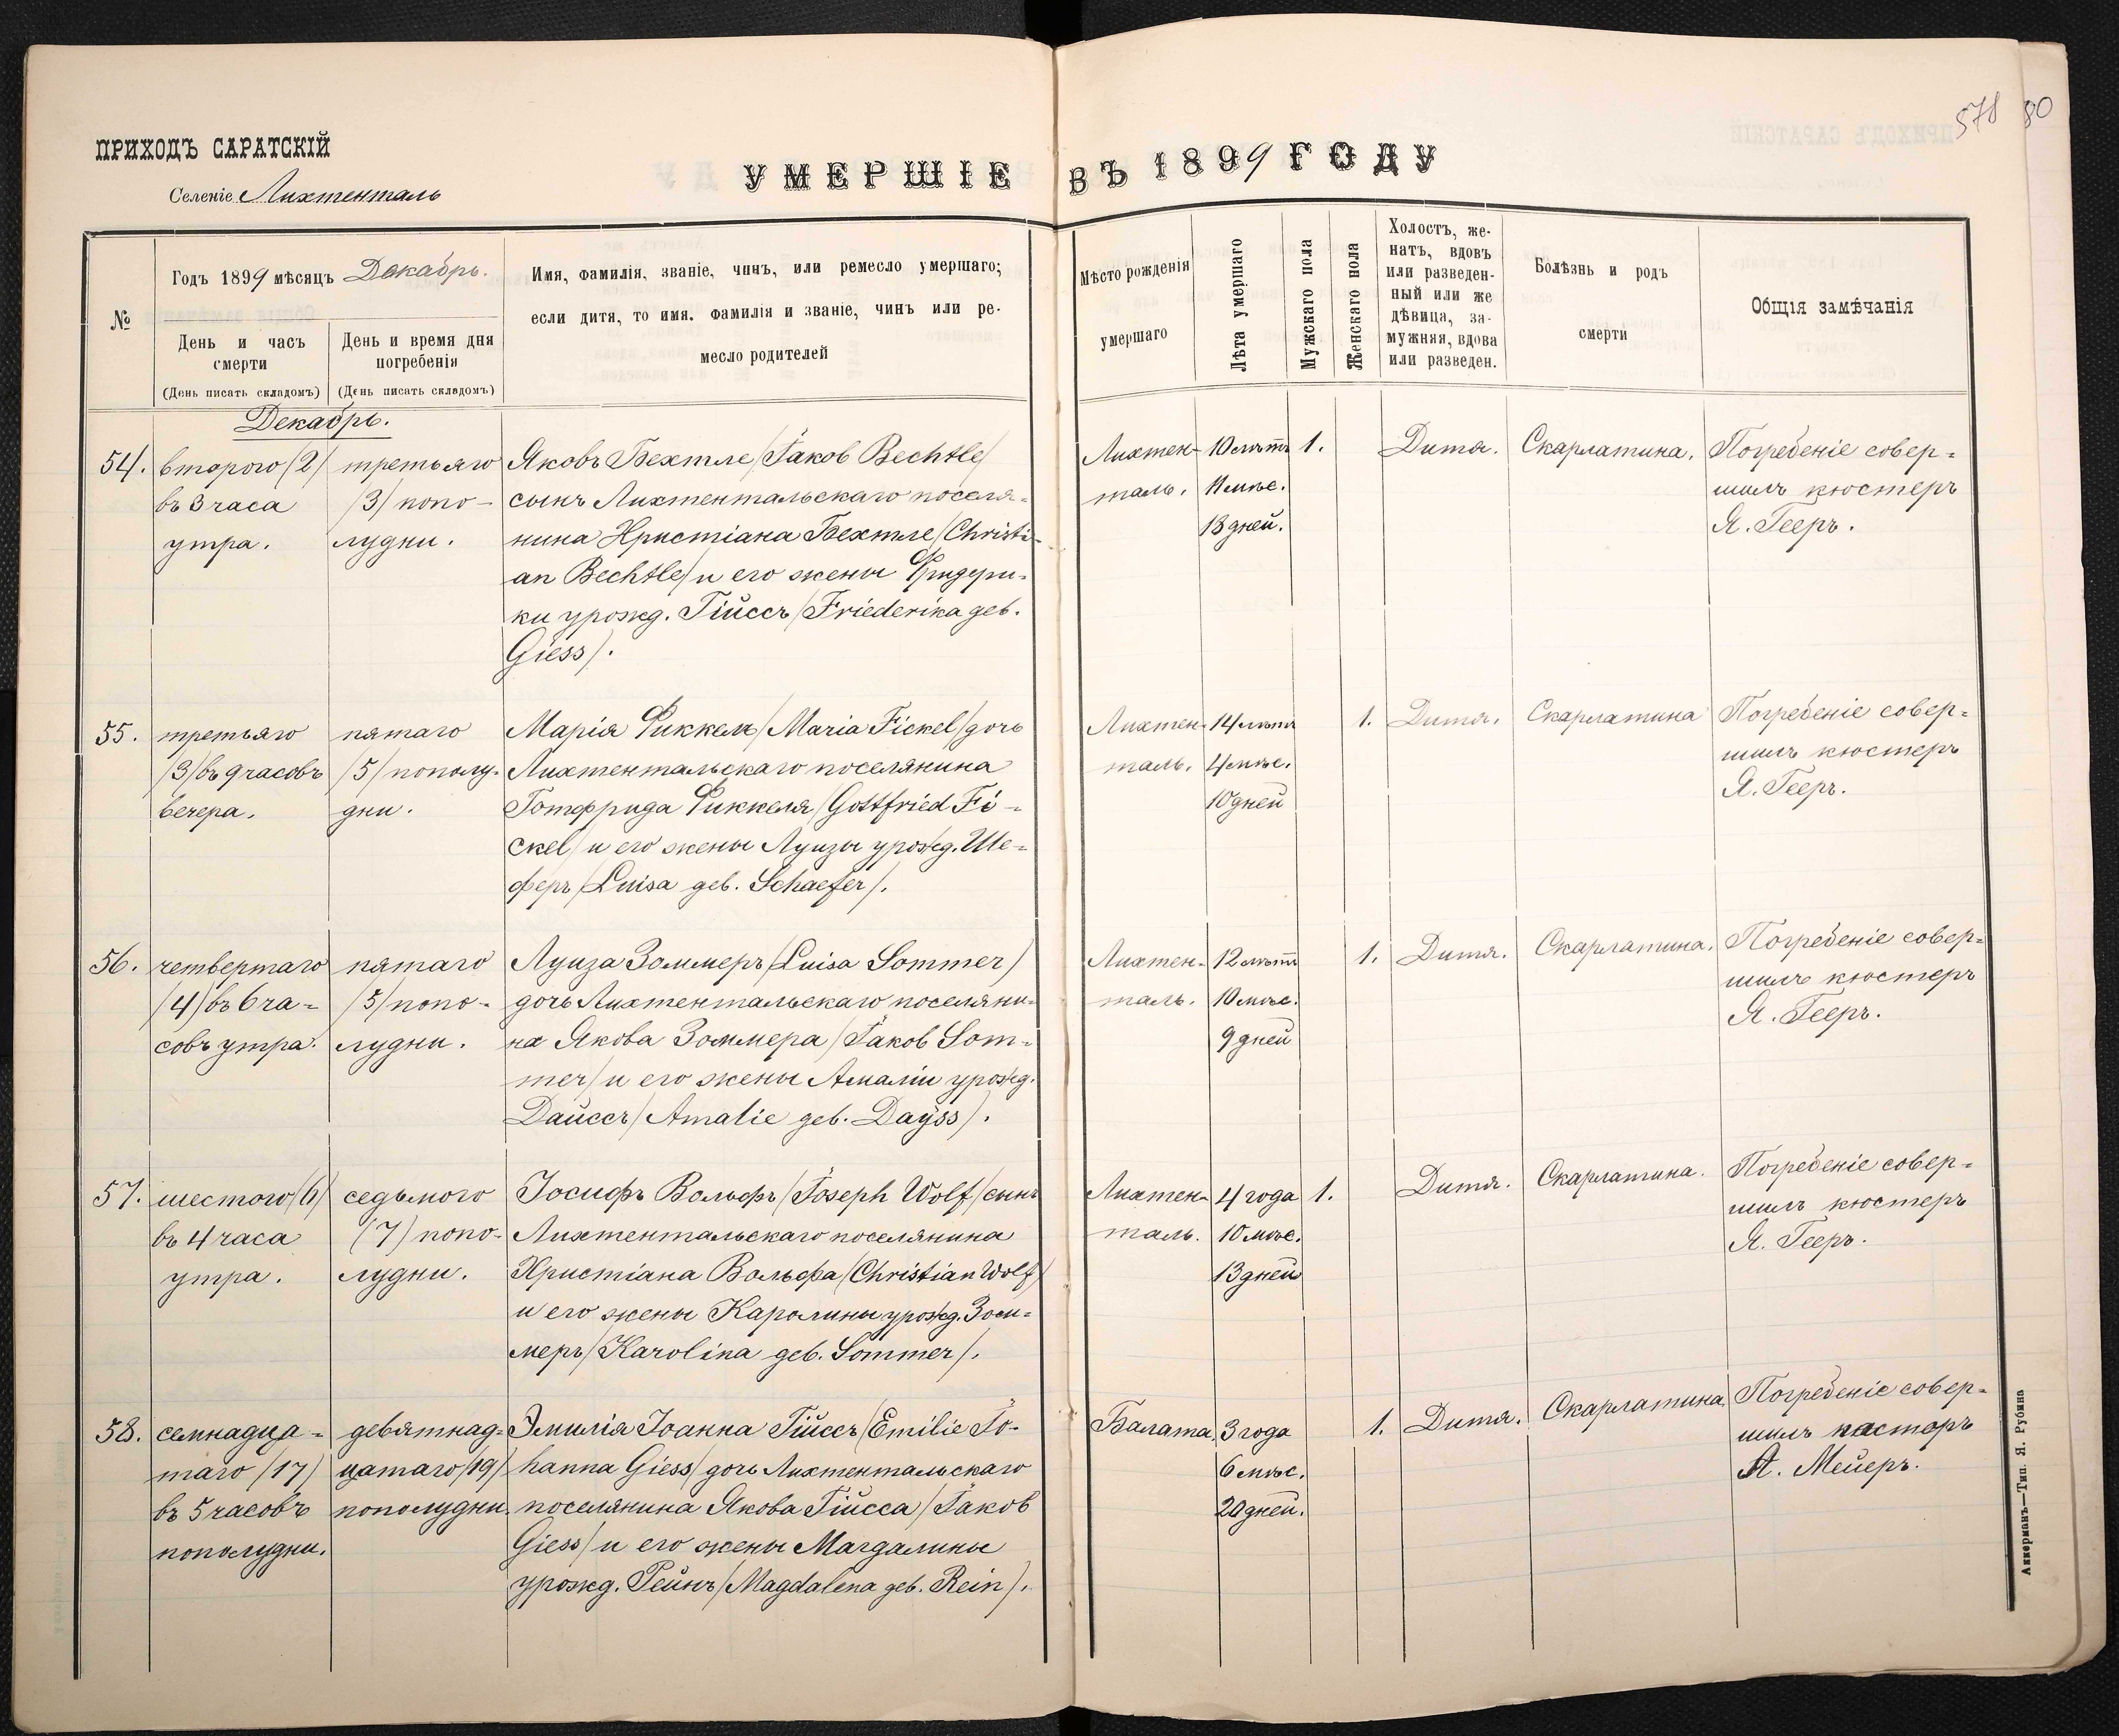 578 80
ПРИХОДЪ САРАТСКІЙ
Селеніе Лихтенталь
УМЕРШІЕ ВЪ 1899 ГОДУ
№
Годъ 1899 мѣсяцъ Декабрь.
День и часъ
смерти
(День писать складомъ)
День и время дня
погребенія
(День писать складомъ)
Имя, фамилія, званіе, чинъ, или ремесло умершаго;
если дитя, то имя. фамилія и званіе, чинъ или ре-
месло родителей
Мѣсто рожденія
умершаго
Лѣта умершаго
Мужскаго пола
Женскаго пола
Холостъ, же-
натъ, вдовъ
или разведен-
ный или же
дѣвица, за-
мужняя, вдова
или разведен.
Болѣзнь и родъ
смерти
Общія замѣчанія
Декабрь.
54.
второго /2/
въ 3 часа
утра.
третьяго
/3/ попо-
лудни.
Яковъ Бехтле /Jакоb Bechtle/
сынъ Лихтентальскаго поселя=
нина Христіана Бехтле /Christi-
an Bechtle/ и его жены Фридери=
ки урожд. Гійссъ /Friederika geb.
Giess/.
Лихтен-
таль.
10 лѣтъ
11 мѣс.
13 дней.
1.
Дитя.
Скарлатина.
Погребеніе совер=
шилъ кюстеръ
Я. Гееръ.
55.
третьяго
/3/ въ 9 часовъ
вечера.
пятаго
/5/ пополу-
дни.
Марія Фиккель /Maria Fickel/ дочь
Лихтентальскаго поселянина
Готфрида Фиккеля /Gottfried Fi-
ckel/ и его жены Луизы урожд. Ше=
феръ /Luisa geb. Schaefer/.
Лихтен-
таль.
14 лѣтъ
4 мѣс.
10 дней
1.
Дитя.
Скарлатина
Погребеніе совер=
шилъ кюстеръ
Я. Гееръ.
56.
четвертаго
/4/ въ 6 ча=
совъ утра.
пятаго
/5/ попо-
лудни.
Луиза Зоммеръ /Luisa Sommer/
дочь Лихтентальскаго поселяни=
на Якова Зоммера /Jakob Som=
mer/ и его жены Амаліи урожд.
Дайссъ /Amalie geb. Dayss/.
Лихтен-
таль.
12 лѣтъ
10 мѣс.
9 дней
1.
Дитя.
Скарлатина.
Погребеніе совер=
шилъ кюстеръ
Я. Гееръ.
57.
шестого /6/
въ 4 часа
утра.
седьмого
(7) попо-
лудни.
Іосифъ Вольфъ /Joseph Wolf/ сынъ
Лихтентальскаго поселянина
Христіана Вольфа /Christian Wolf/
и его жены Каролины урожд. Зом=
меръ /Karolina geb. Sommer/.
Лихтен-
таль.
4 года
10 мѣс.
13 дней
1.
Дитя.
Скарлатина.
Погребеніе совер=
шилъ кюстеръ
Я. Гееръ.
58.
семнадца=
таго /17/
въ 5 часовъ
пополудни.
девятнад=
цатаго /19/
пополудни.
Эмилія Іоанна Гійссъ /Emilie Jo-
hanna Giess/ дочь Лихтентальскаго
поселянина Якова Гійсса /Jakob
Giess/ и его жены Магдалины
урожд. Рейнъ /Magdalena geb. Rein/.
Балата.
3 года
6 мѣс.
20 дней.
1.
Дитя.
Скарлатина.
Погребеніе совер=
шилъ пасторъ
А. Мейеръ.
Аккерманъ—Тип. Я. Рубина